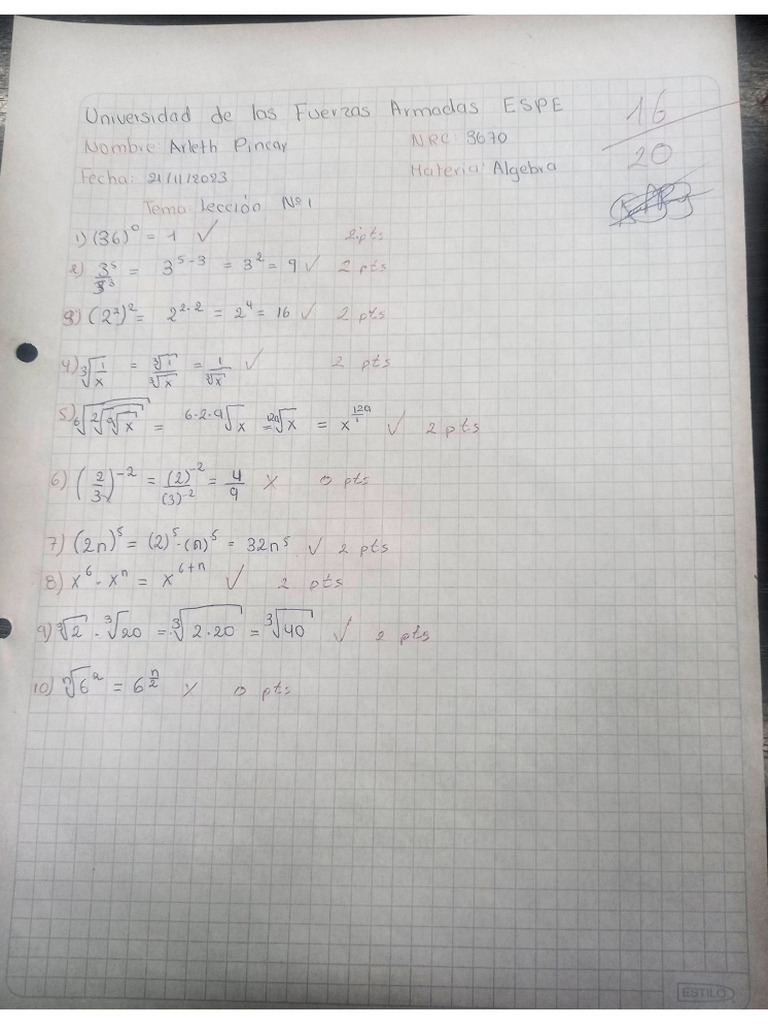 Universidad de las Fuerzas Armadas ESPE
16/20
Nombre: Arleth Pincay NRC: 3670
Fecha: 21/11/2023 Materia: Algebra
Tema: Lección Nº1
1) (36)⁰ = 1 ✓ 2 pts
2) 3⁵/3³ = 3⁵⁻³ = 3² = 9 ✓ 2 pts
3) (2²)² = 2²·² = 2⁴ = 16 ✓ 2 pts
4) ∛(1/x) = ∛1/∛x = 1/∛x ✓ 2 pts
5) ⁶√(²√(ᵃ√x)) = ⁶·²·ᵃ√x = ¹²ᵃ√x = x^(12a/1) ✓ 2 pts
6) (2/3)⁻² = (2)⁻²/(3)⁻² = 4/9 X 0 pts
7) (2n)⁵ = (2)⁵·(n)⁵ = 32n⁵ ✓ 2 pts
8) x⁶ · xⁿ = x⁶⁺ⁿ ✓ 2 pts
9) ∛2 · ∛20 = ∛(2·20) = ∛40 ✓ 2 pts
10) ⁿ√6² = 6^(n/2) X 0 pts
ESTILO